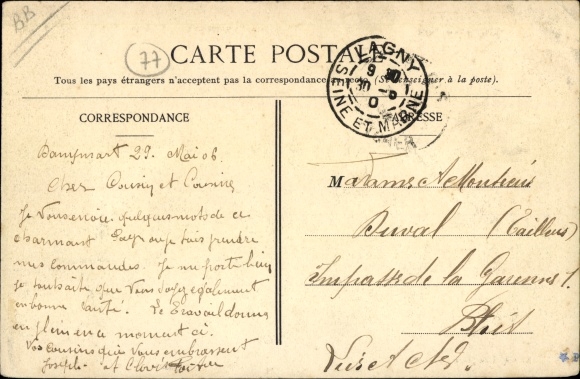 BB
77
CARTE POSTALE
Tous les pays étrangers n'acceptent pas la correspondance au recto (Se renseigner à la poste).
LAGNY
9 30
30 -5
0
SEINE ET MARNE
CORRESPONDANCE
ADRESSE
29 Mai 06
Cher Cousin et Cousine
Je Vous envoie quelques mots de ce
charmant pays ou je fais prendre
mes commandes. Je me porte bien
je souhaite que Vous soyez également
en bonne santé. Le Travail donne
en plein en ce moment ci.
Vos cousins qui Vous embrassent
Joseph et
M
Duval (Tailleur)
Impasse de la Garenne